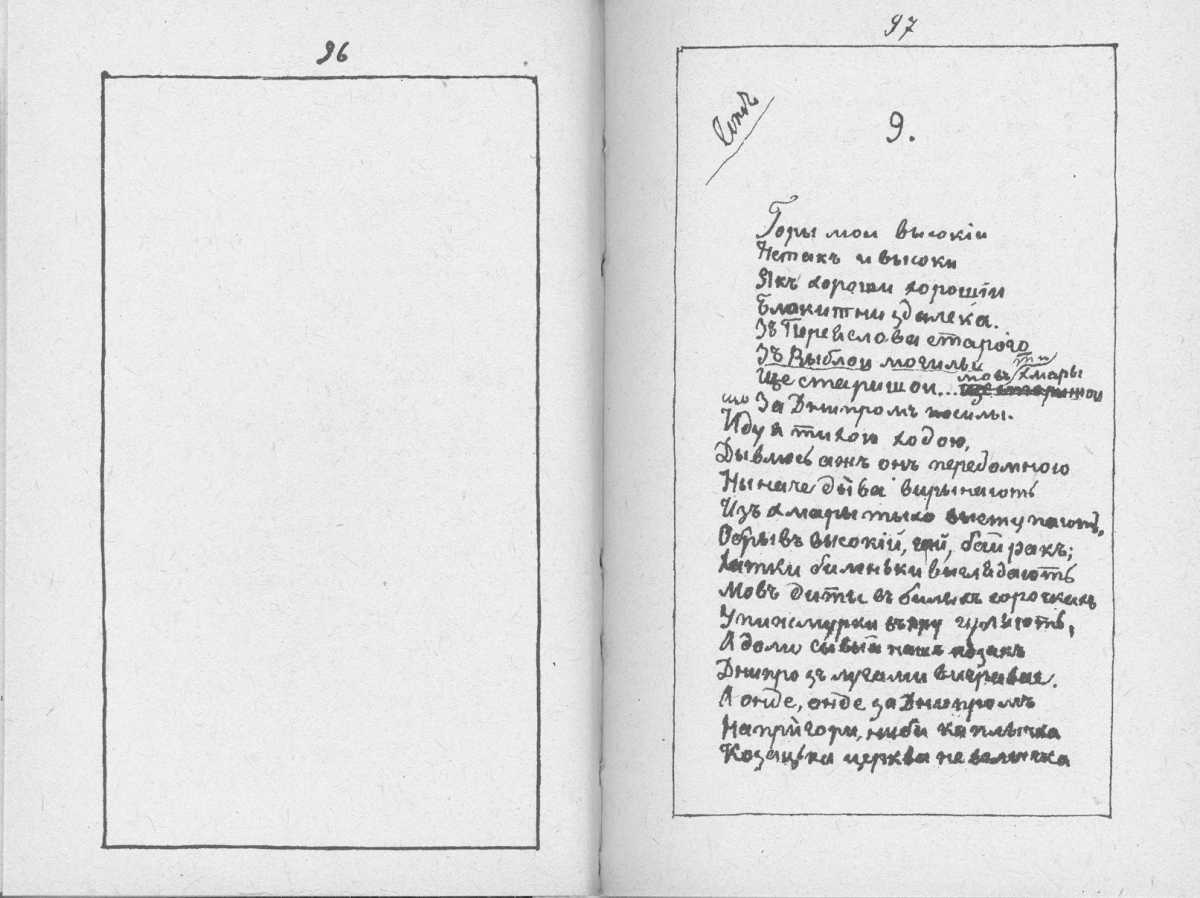 96
97
9.
Горы мои высокіи
Нетакъ и высоки
Якъ хороши хорошіи
Блакитни здалека.
Зъ Переяслова старого
Зъ Выблои могильи
Ще старишои... мовъ ти хмары
що За Днипромъ посилы.
Иду я тихою ходою,
Дывлюсь ажъ онъ передомною
Ныначе дыва вирынають
Изъ хмары тыхо выступають,
Обрывъ высокій, гай, байракъ;
Хатки биленьки выглядають
Мовъ диты въ билыхъ сорочкахъ
У пижмурки въ яру гуляють,
А доли сывый нашъ козакъ
Днипро зъ лугами выграває.
А онде, онде за Днипромъ
На пригори, ниби каплычка
Козацька церква не велычка